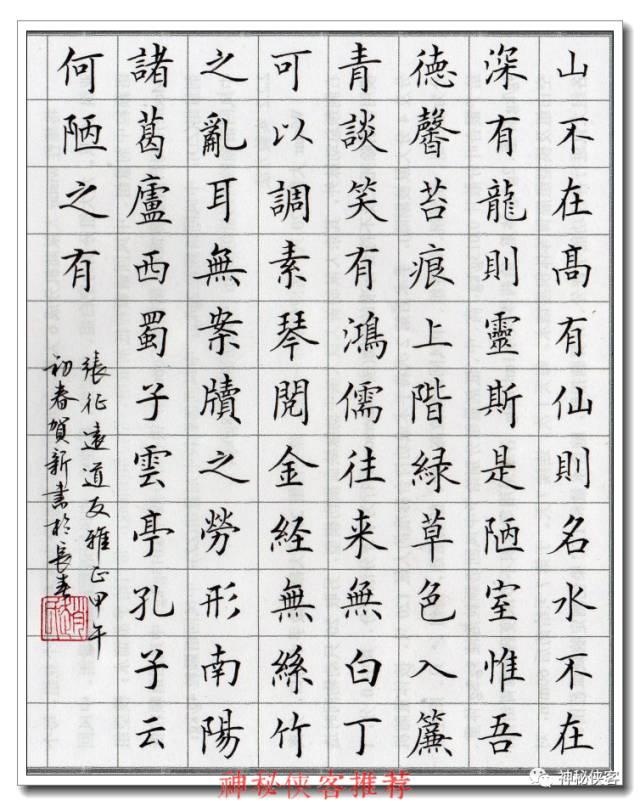 山不在高有仙則名水不在
深有龍則靈斯是陋室惟吾
德馨苔痕上階緑草色入簾
青談笑有鴻儒往来無白丁
可以調素琴閱金経無絲竹
之亂耳無案牘之勞形南陽
諸葛廬西蜀子雲亭孔子云
何陋之有
張征遠道友雅正甲午
初春賀新書於長春
神秘侠客推荐
神秘侠客